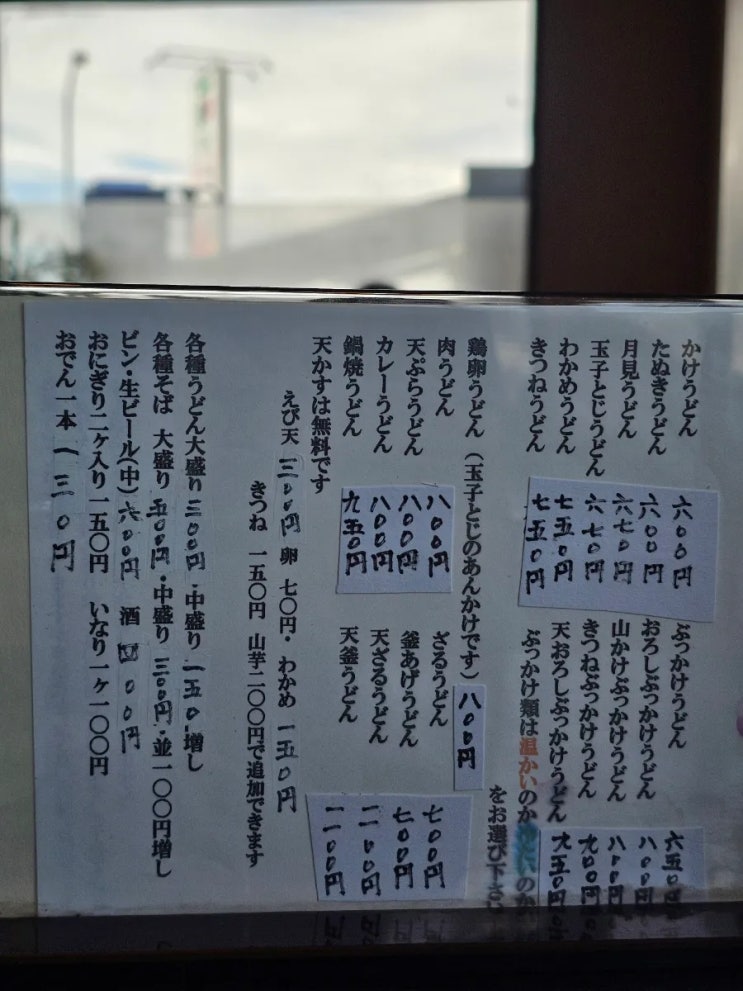 かけうどん 六００円
たぬきうどん 六００円
月見うどん 六七０円
玉子とじうどん 六七０円
わかめうどん 七五０円
きつねうどん 七五０円
ぶっかけうどん 六五０円
おろしぶっかけうどん 八００円
山かけぶっかけうどん 八００円
きつねぶっかけうどん 九００円
天おろしぶっかけうどん 九五０円
ぶっかけ類は温かいのか冷たいのか
をお選び下さい
鶏卵うどん（玉子とじのあんかけです）八００円
肉うどん 八００円
天ぷらうどん 八００円
カレーうどん 八００円
鍋焼うどん 九五０円
ざるうどん 七００円
釜あげうどん 七００円
天ざるうどん 一一００円
天釜うどん 一一００円
天かすは無料です
えび天 三００円 卵 七〇円・わかめ 一五０円
きつね 一五〇円 山芋二〇〇円で追加できます
各種うどん大盛り 三００円・中盛り 一五０増し
各種そば 大盛り 五００円・中盛り 三００円・並一〇〇円増し
ビン・生ビール(中) 六００円 酒 四００円
おにぎり二ケ入り一五〇円 いなり一ケ一〇〇円
おでん一本 一三０円